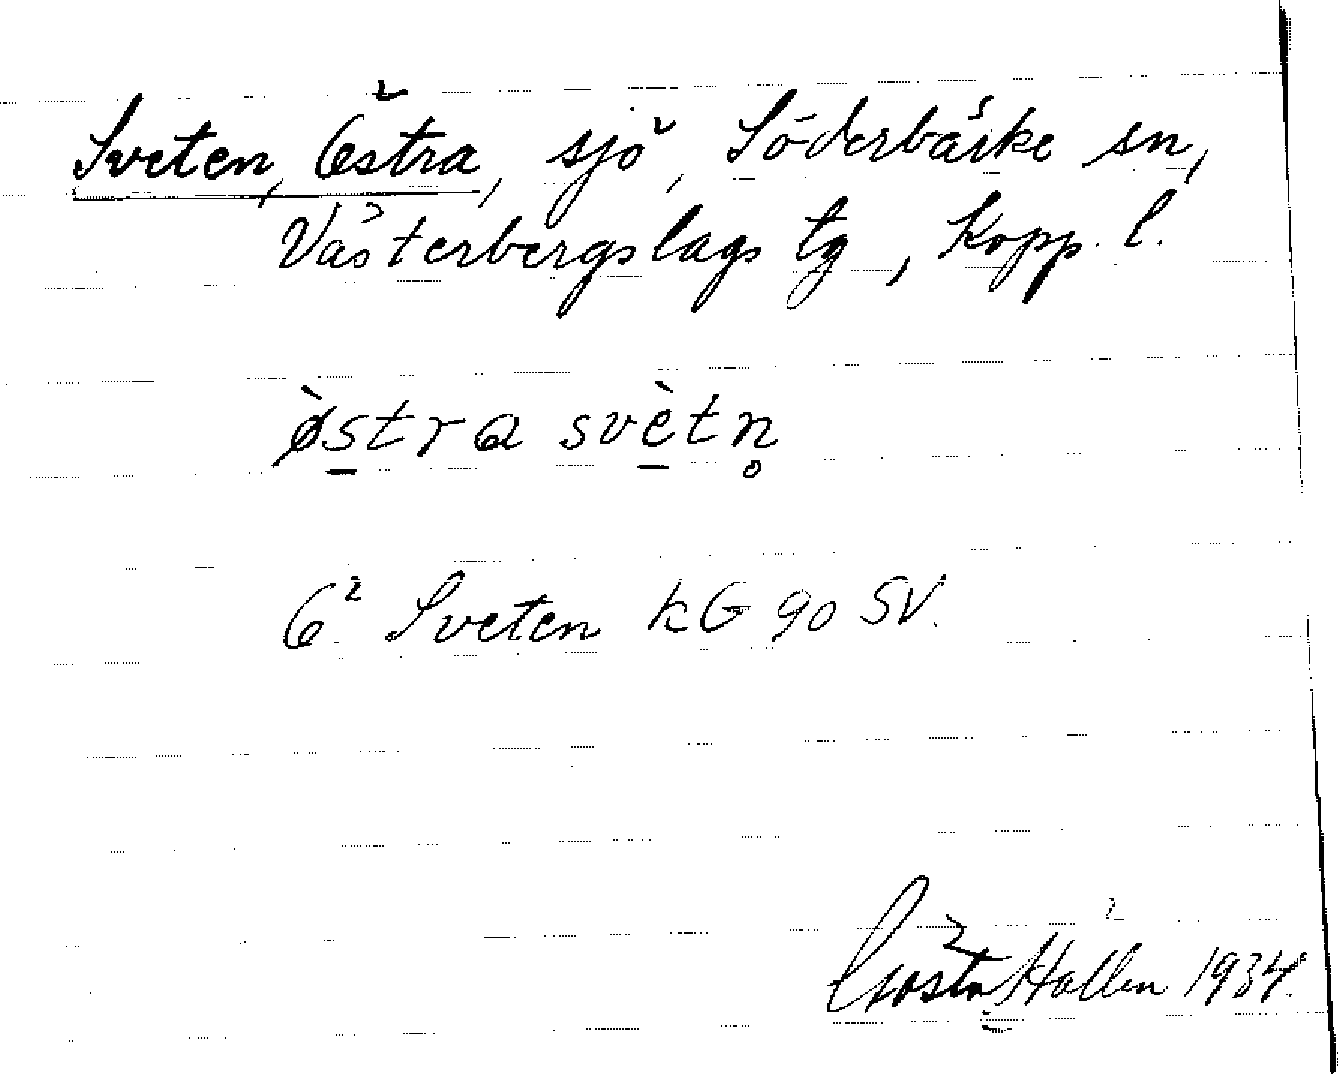 Sveten, Östra, sjö, Söderbärke sn,
Västerbergslags tg, Kopp. l.
ø̀stra svètn̥
Ö. Sveten kG 90 SV.
Gösta Hallén 1934.